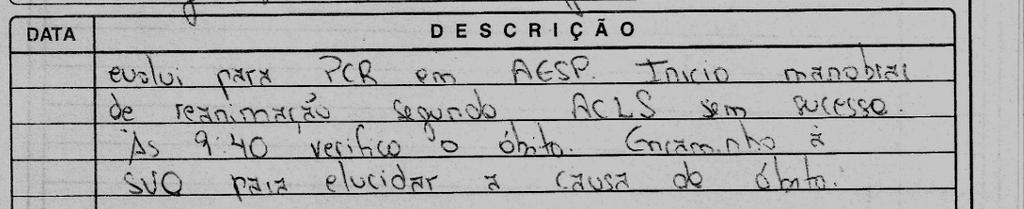 DATA DESCRIÇÃO
evolui para PCR em AESP. Inicio manobras
de reanimação segundo ACLS sem sucesso.
Às 9:40 verifico o óbito. Encaminho à
SVO para elucidar a causa do óbito.